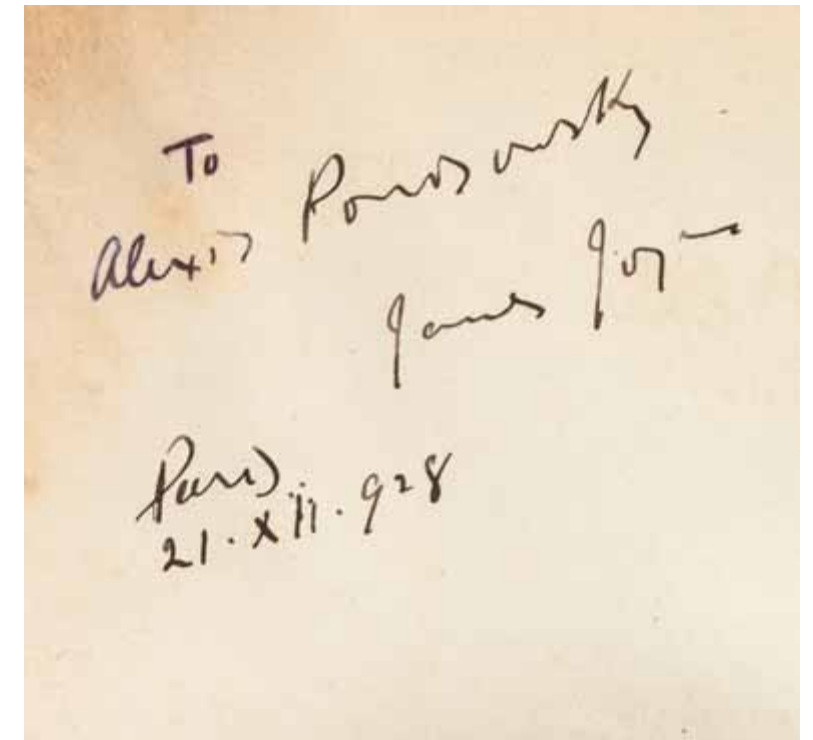 To
Alexis Ponisovsky
James Joyce
Paris
21.XII.928